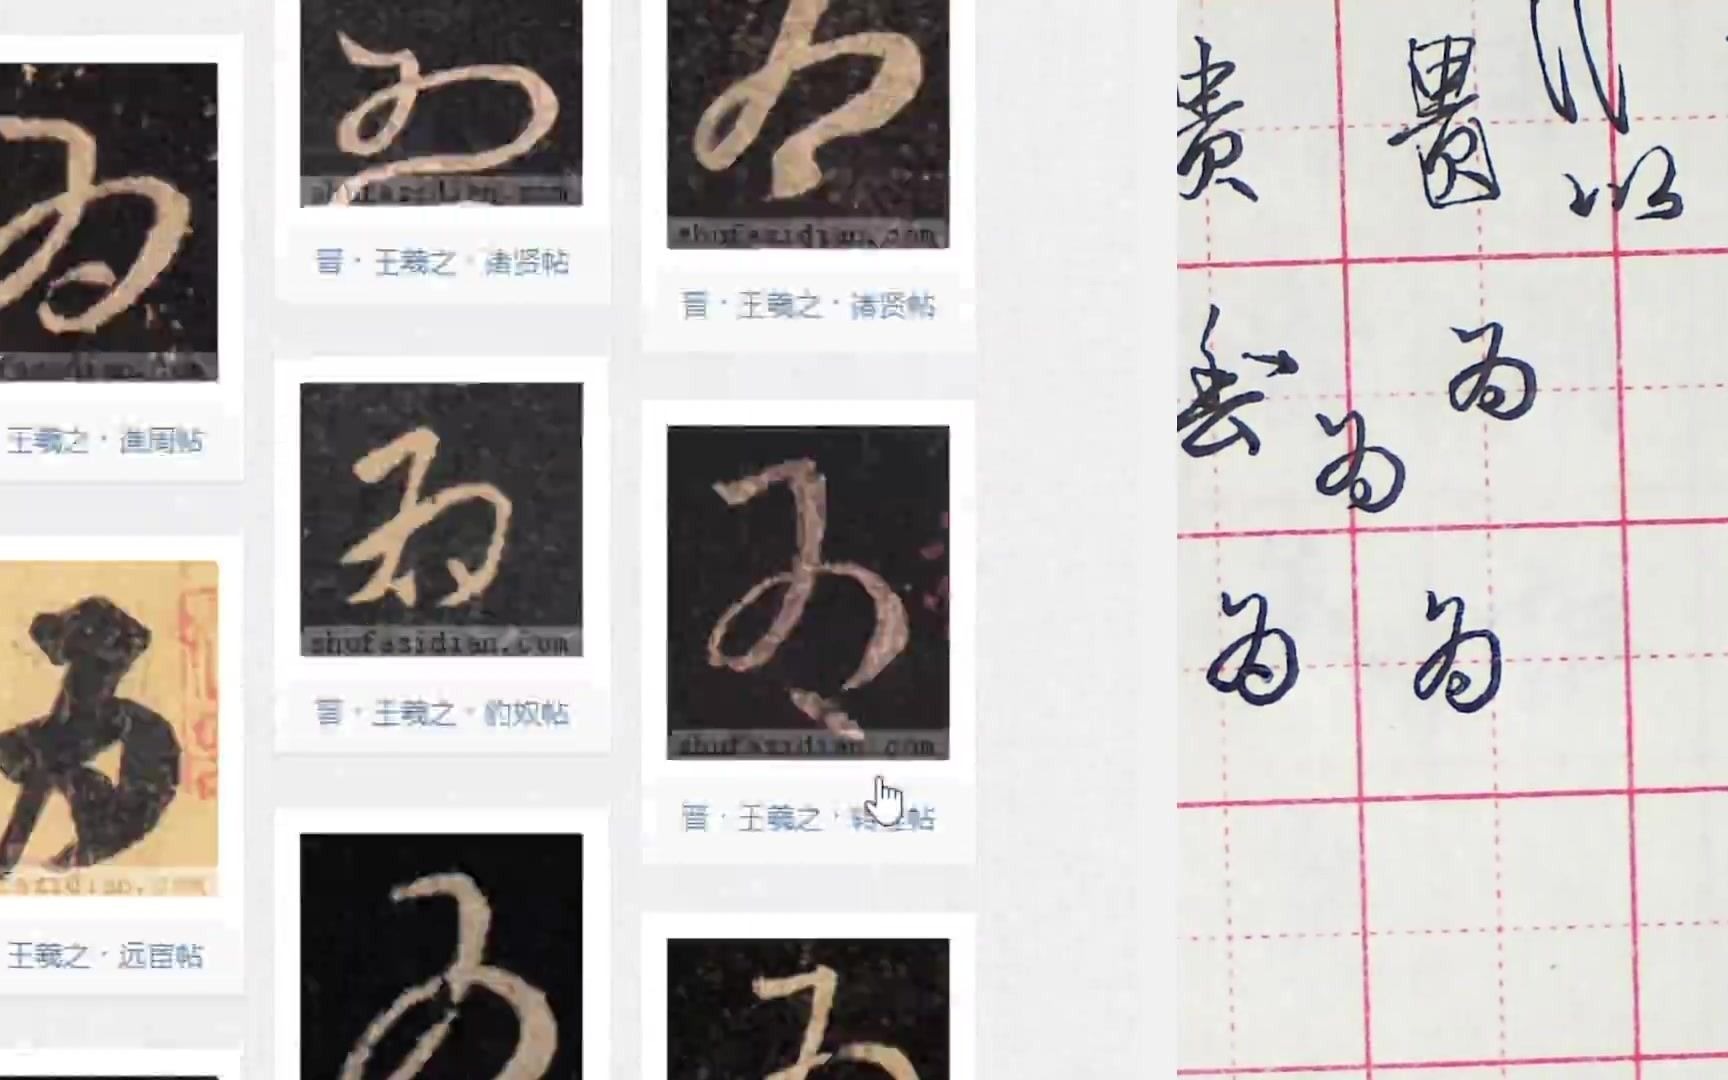 shufazidian.com
晋·王羲之·诸贤帖
shufazidian.com
晋·王羲之·诸贤帖
王羲之·進周帖
shufazidian.com
晋·王羲之·豹奴帖
shufazidian.com
晋·王羲之·
帖
王羲之·远宦帖
為
為
為
為
貴
以